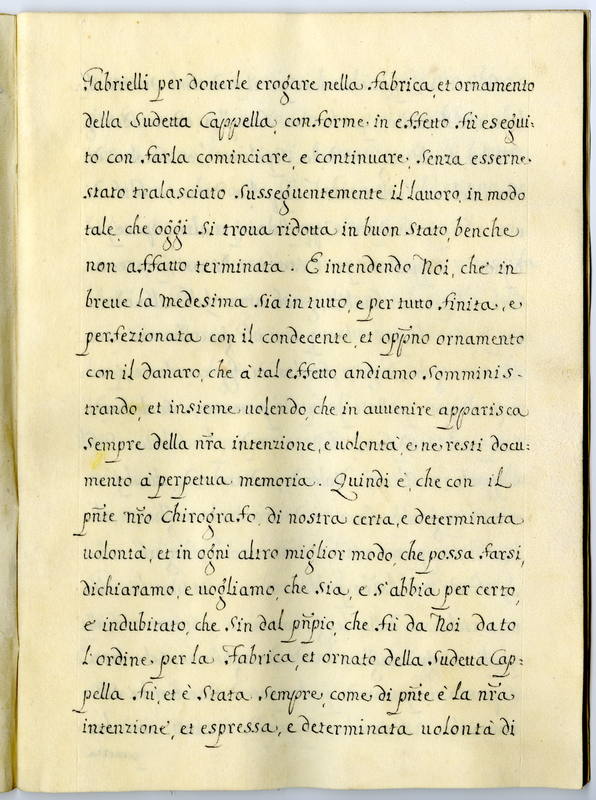 Gabrielli per douerle erogare nella fabrica, et ornamento
della Sudetta Cappella, conforme in effetto fù esegui:
to con farla cominciare, e continuare, Senza esserne
stato tralasciato sussequentemente il lauoro, in modo
tale, che oggi si troua ridotta in buon stato, benche
non affatto terminata. E intendendo Noi, che in
breue la medesima sia in tutto, e per tutto finita, e
perfezionata con il condecente, et opp̃no ornamento
con il danaro, che à tal effetto andiamo somminis-
trando, et insieme uolendo, che in auuenire apparisca
sempre della nr̃a intenzione, e uolontà, e ne resti docu:
mento à perpetua memoria. Quindi è, che con il
pñte nr̃o Chirografo, di nostra certa, e determinata
uolontà, et in ogni altro miglior modo, che possa farsi,
dichiaramo, e uogliamo, che sia, e s'abbia per certo,
e indubitato, che sin dal pñpio, che fù da Noi dato
l'ordine per la Fabrica, et ornato della sudetta Cap:
pella fù, et è Stata sempre, come di pñte è la nr̃a
intenzione, et espressa, e determinata uolontà di